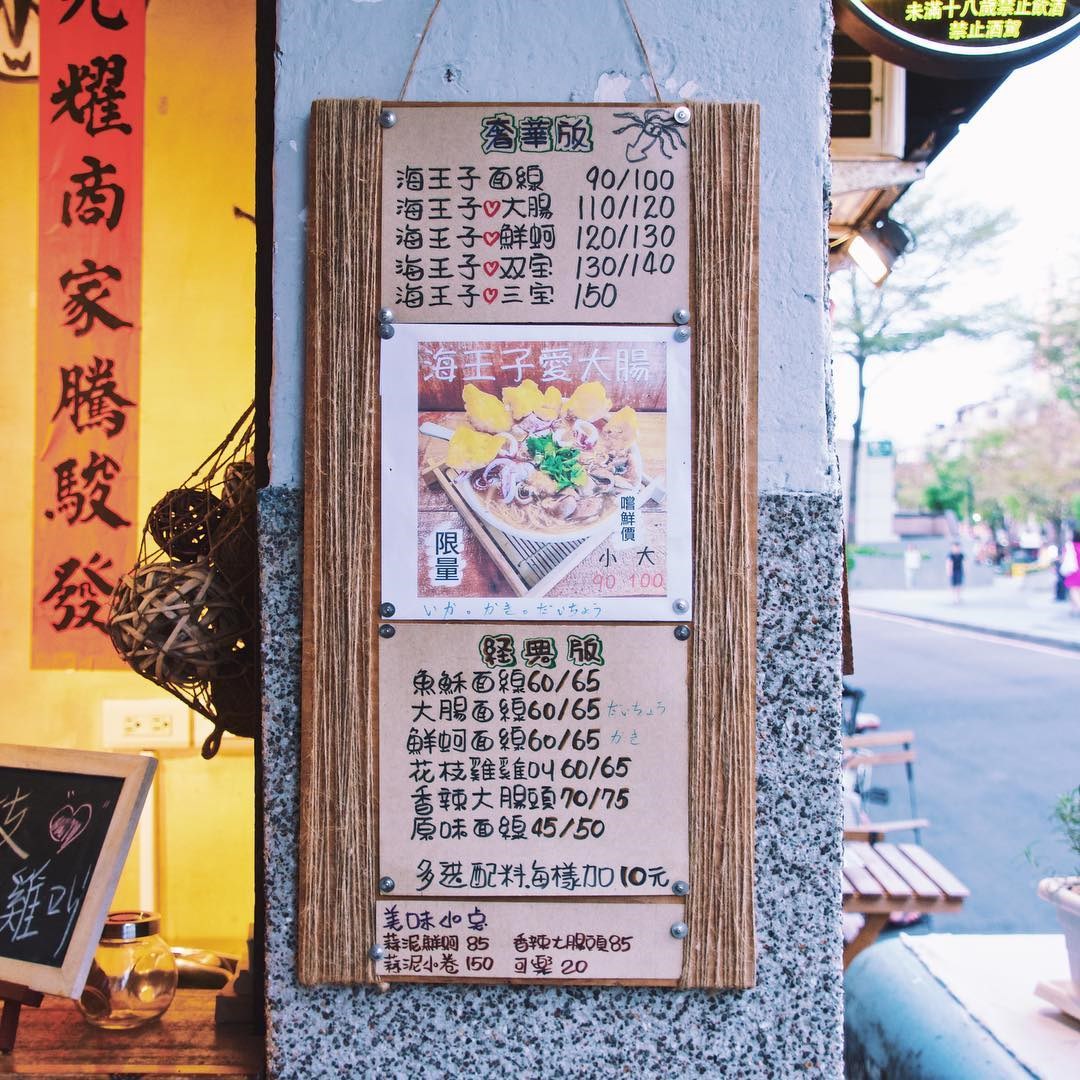 耀商家騰駿發
未滿十八歲禁止飲酒
禁止酒駕
奢華版
海王子面線 90/100
海王子♡大腸 110/120
海王子♡鮮蚵 120/130
海王子♡双宝 130/140
海王子♡三宝 150
海王子愛大腸
嚐鮮價
限量
小 大
90 100
いか。かき。だいちょう
経典版
魚酥面線60/65
大腸面線60/65 だいちょう
鮮蚵面線60/65 かき
花枝雞雞叫60/65
香辣大腸頭70/75
原味面線45/50
多選配料每樣加10元
美味小桌
蒜泥鮮蚵 85 香辣大腸頭85
蒜泥小卷 150 可樂 20
雞叫